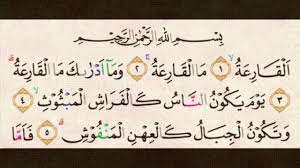 بِسْمِ اللهِ الرَّحْمٰنِ الرَّحِيْمِ
اَلْقَارِعَةُ ۙ ١ مَا الْقَارِعَةُ ۚ ٢ وَمَآ اَدْرٰىكَ مَا الْقَارِعَةُ ۗ
٣ يَوْمَ يَكُوْنُ النَّاسُ كَالْفَرَاشِ الْمَبْثُوْثِ ۙ ٤
وَتَكُوْنُ الْجِبَالُ كَالْعِهْنِ الْمَنْفُوْشِ ۗ ٥ فَاَمَّا